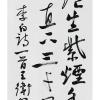 生紫煙
直下三千
李白詩一首